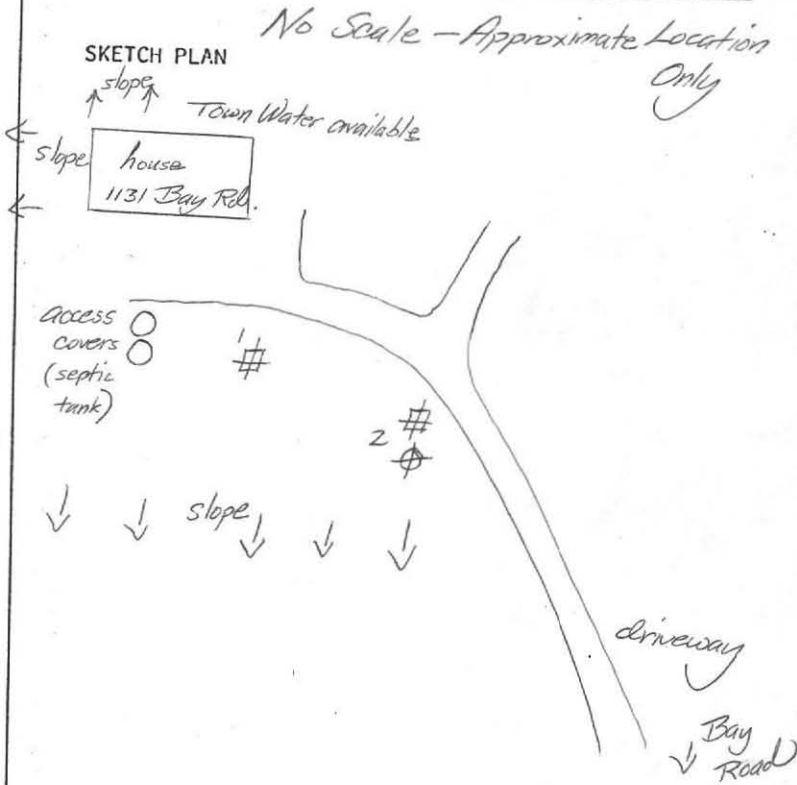 No Scale - Approximate Location
Only
SKETCH PLAN
slope
Town Water available
slope
house
1131 Bay Rd.
access
covers
(septic
tank)
1
2
slope
driveway
Bay
Road